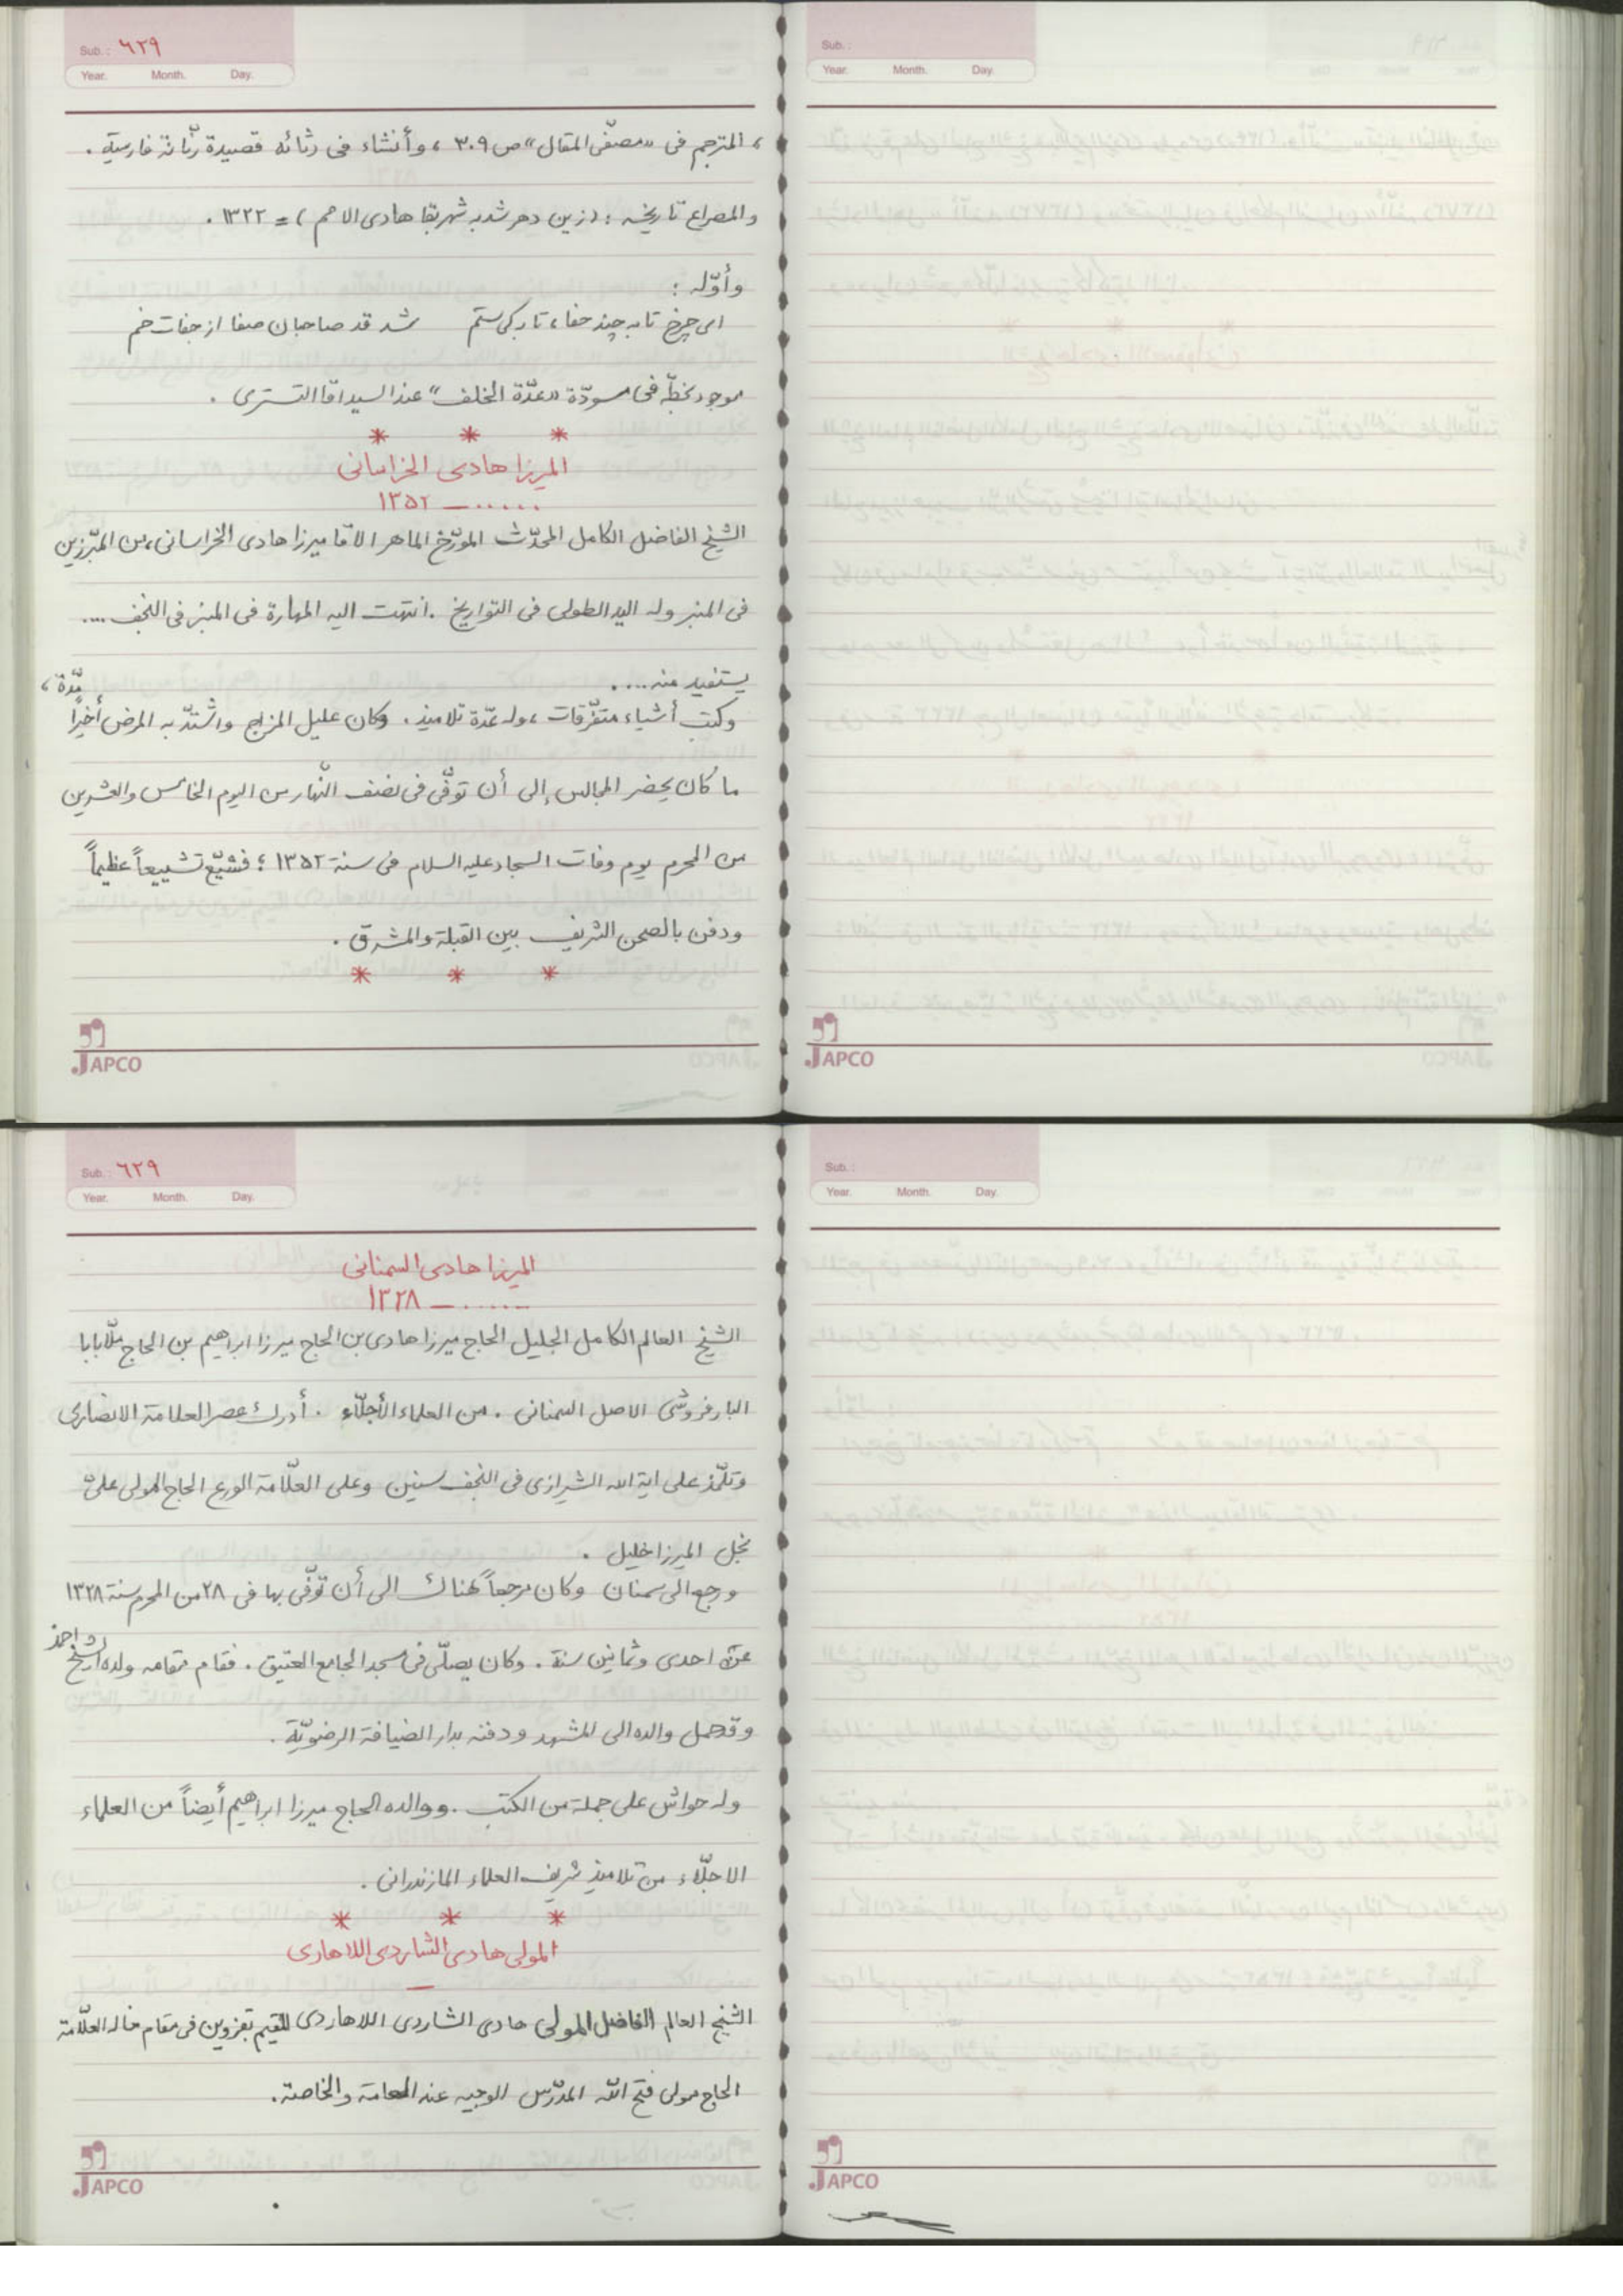 Sub.: ٦٢٩
Year. Month. Day.
، المترجم فى «مصفّى المقال» ص ٣٠٩ ، وأنشاء فى رثائه قصيدة رنّانة فارسية .
والمصراع تاريخه : (زين دهر شد به شهر بقا هادى الامم ) = ١٣٢٢ .
وأوّله :
اى چرخ تا به چند جفا، تا بكى ستم شد قد صاحبان صفا از جفات خم
موجود بخطّه فى مسودّة «عدّة الخلف» عند السيد اقا التسترى .
* * *
الميرزا هادى الخراسانى
..... — ١٣٥٢
الشيخ الفاضل الكامل المحدّث المورّخ الماهر الاقا ميرزا هادى الخراسانى، من المبرّزين
فى المنبر وله اليد الطولى فى التواريخ . انتهت اليه المهارة فى المنبر فى النجف ....
يستفيد منه ....
وكتب أشياء متفرّقات ، وله عدّة تلاميذ . وكان عليل المزاج واشتدّ به المرض أخيرًا مدّة ،
ما كان يحضر المجالس إلى أن توفّى فى نصف النّهار من اليوم الخامس والعشرين
من المحرم يوم وفات السجاد عليه السلام فى سنة ١٣٥٢ ؛ فشيّع تشييعاً عظيماً
ودفن بالصحن الشريف بين القبلة والمشرق .
* * *
JAPCO
Sub.:
Year. Month. Day.
JAPCO
Sub.: ٦٢٩
Year. Month. Day.
الميرزا هادى السمنانى
..... — ١٣٢٨
الشيخ العالم الكامل الجليل الحاج ميرزا هادى بن الحاج ميرزا ابراهيم بن الحاج ملّا بابا
البارفروشى الاصل السمنانى . من العلماء الأجلّاء . أدرك عصر العلامة الانصارى
وتلمّذ على اية الله الشيرازى فى النجف سنين وعلى العلّامة الورع الحاج المولى علىّ
نجل الميرزا خليل .
ورجع الى سمنان وكان مرجعاً هناك الى أن توفّى بها فى ٢٨ من المحرم سنة ١٣٢٨
عن احدى وثمانين سنة . وكان يصلّى فى مسجد الجامع العتيق . فقام مقامه ولده الشيخ احمد
وقد حمل والده الى المشهد ودفنه بدار الضيافة الرضويّة .
وله حواش على جملة من الكتب . ووالده الحاج ميرزا ابراهيم أيضاً من العلماء
الاجلّاء من تلاميذ شريف العلماء المازندرانى .
* * *
المولى هادى الشاردى اللاهاردى
—
الشيخ العالم الفاضل المولى هادى الشاردى اللاهاردى المقيم بقزوين فى مقام خاله العلّامة
الحاج مولى فتح اللّه المدرّس الوجيه عند العامة والخاصة .
JAPCO
Sub.:
Year. Month. Day.
JAPCO